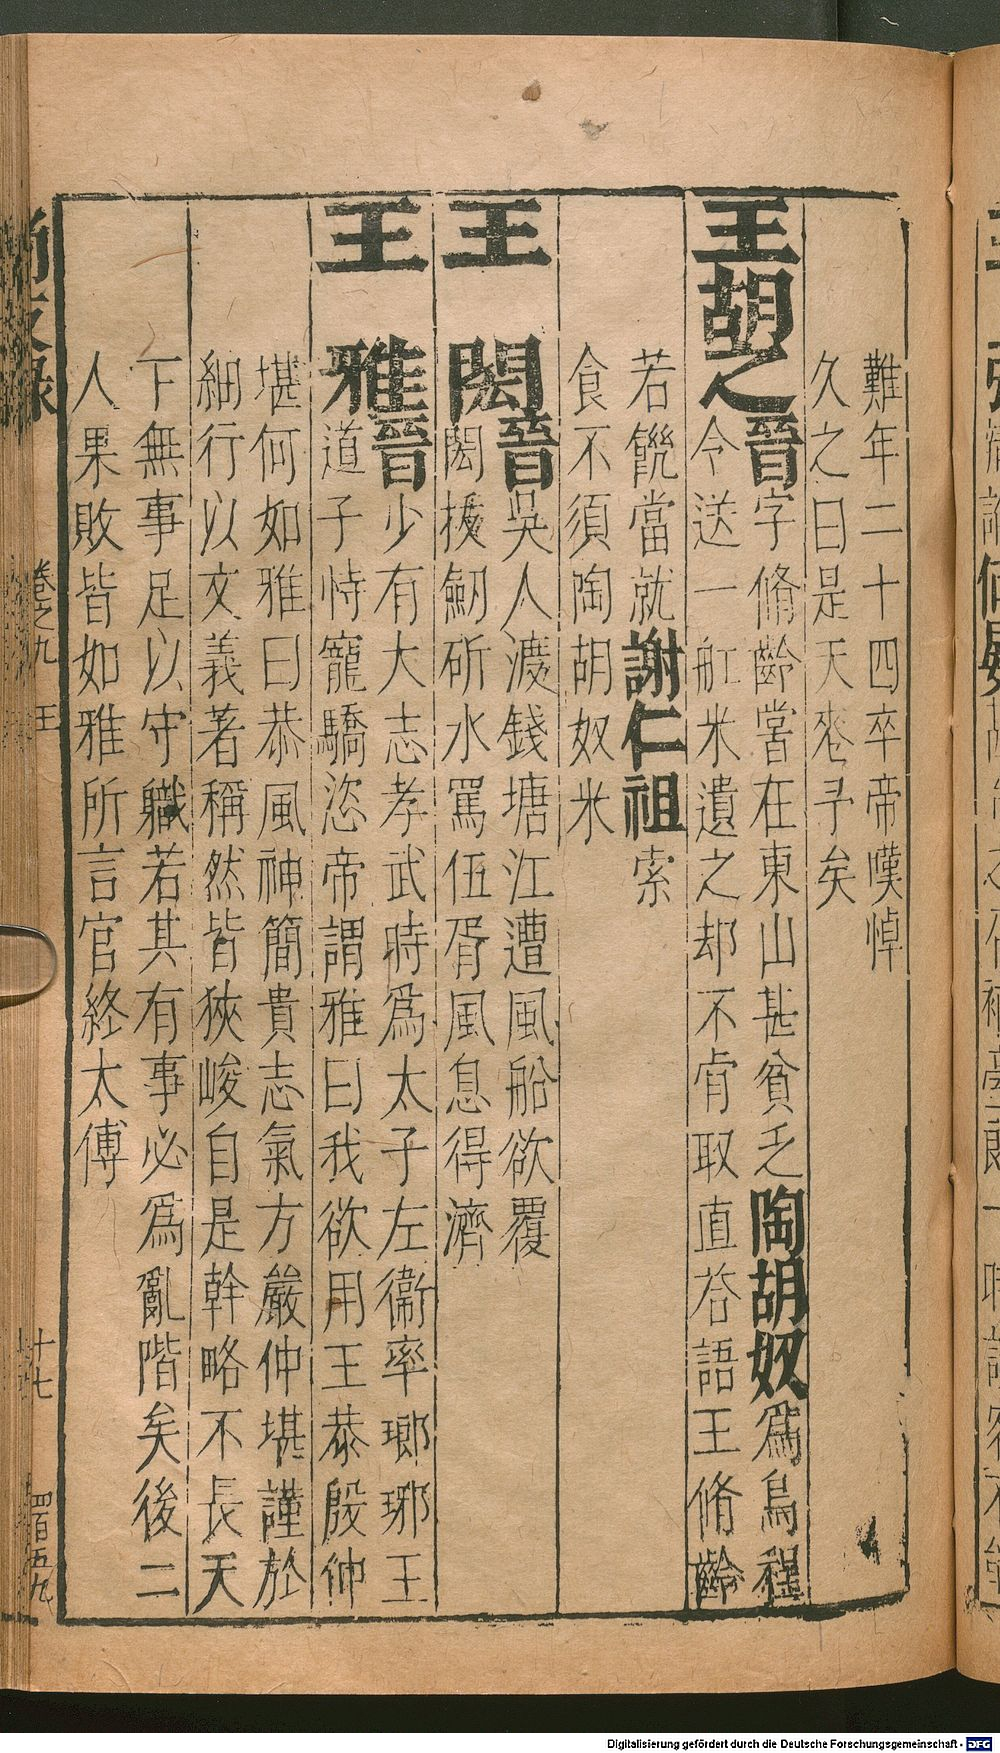 難年二十四卒帝嘆悼
久之曰是天喪予矣
王胡之晉字脩齡嘗在東山甚貧乏陶胡奴爲烏程
令送一舡米遺之却不肯取直荅語王脩齡
若飢當就謝仁祖索
食不須陶胡奴米
王閎晉吳人渡錢塘江遭風船欲覆
閎拔劒斫水罵伍胥風息得濟
王雅晉少有大志孝武時爲太子左衞率瑯琊王
道子恃寵驕恣帝謂雅曰我欲用王恭殷仲
堪何如雅曰恭風神簡貴志氣方嚴仲堪謹於
細行以文義著稱然皆狹峻自是幹略不長天
下無事足以守職若其有事必爲亂階矣後二
人果敗皆如雅所言官終太傅
尚友錄 卷之九 王 十七 四百五九
Digitalisierung gefördert durch die Deutsche Forschungsgemeinschaft - DFG